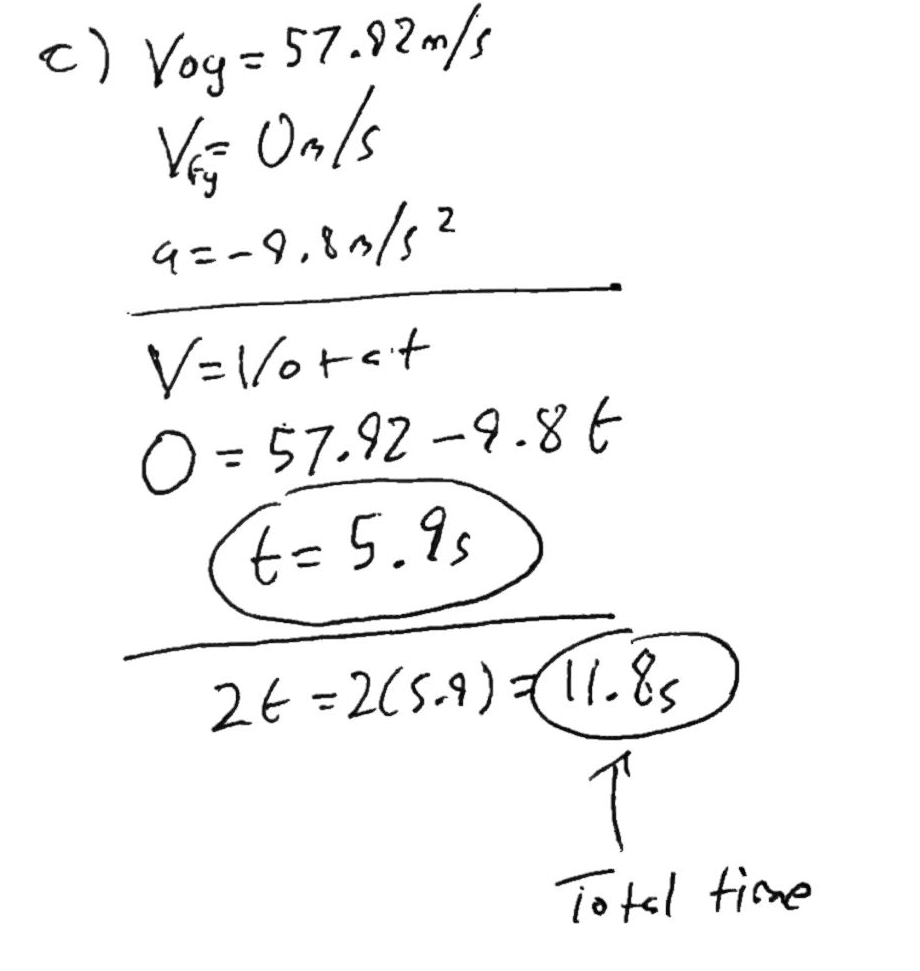 c) Voy = 57.92 m/s
Vfy = 0 m/s
a = -9.8 m/s²
V = Vo + at
0 = 57.92 - 9.8 t
t = 5.9s
2t = 2(5.9) = 11.8s
↑
Total time